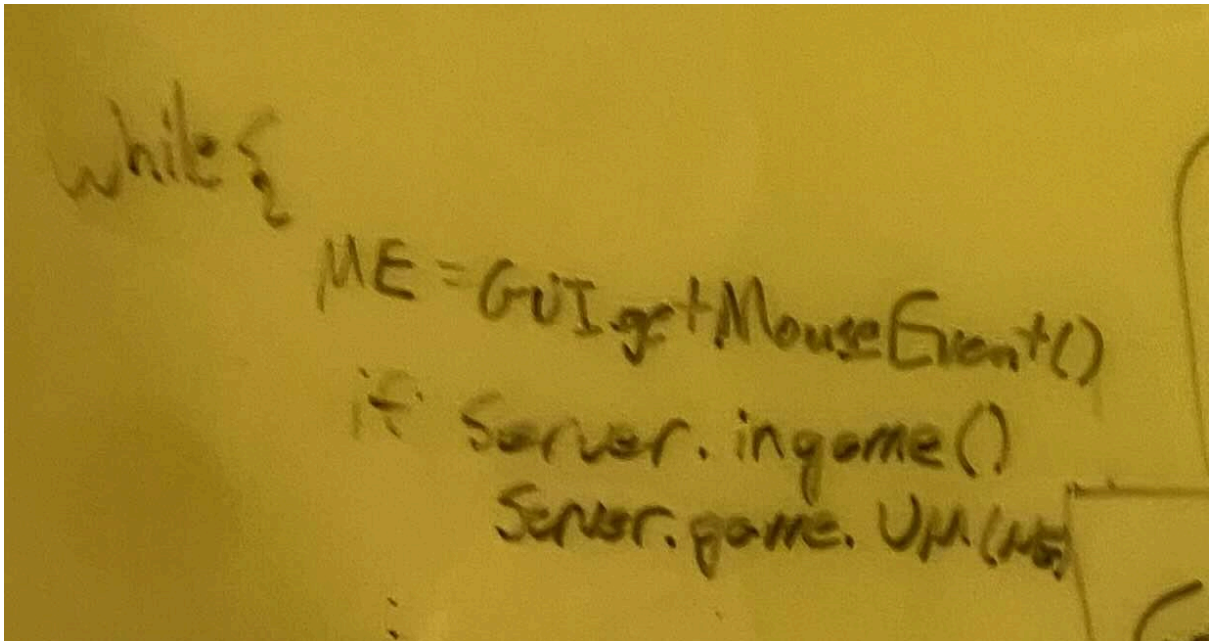 while {
ME = GUI.getMouseEvent()
if Server.ingame()
Server.game.UM(ME)
: